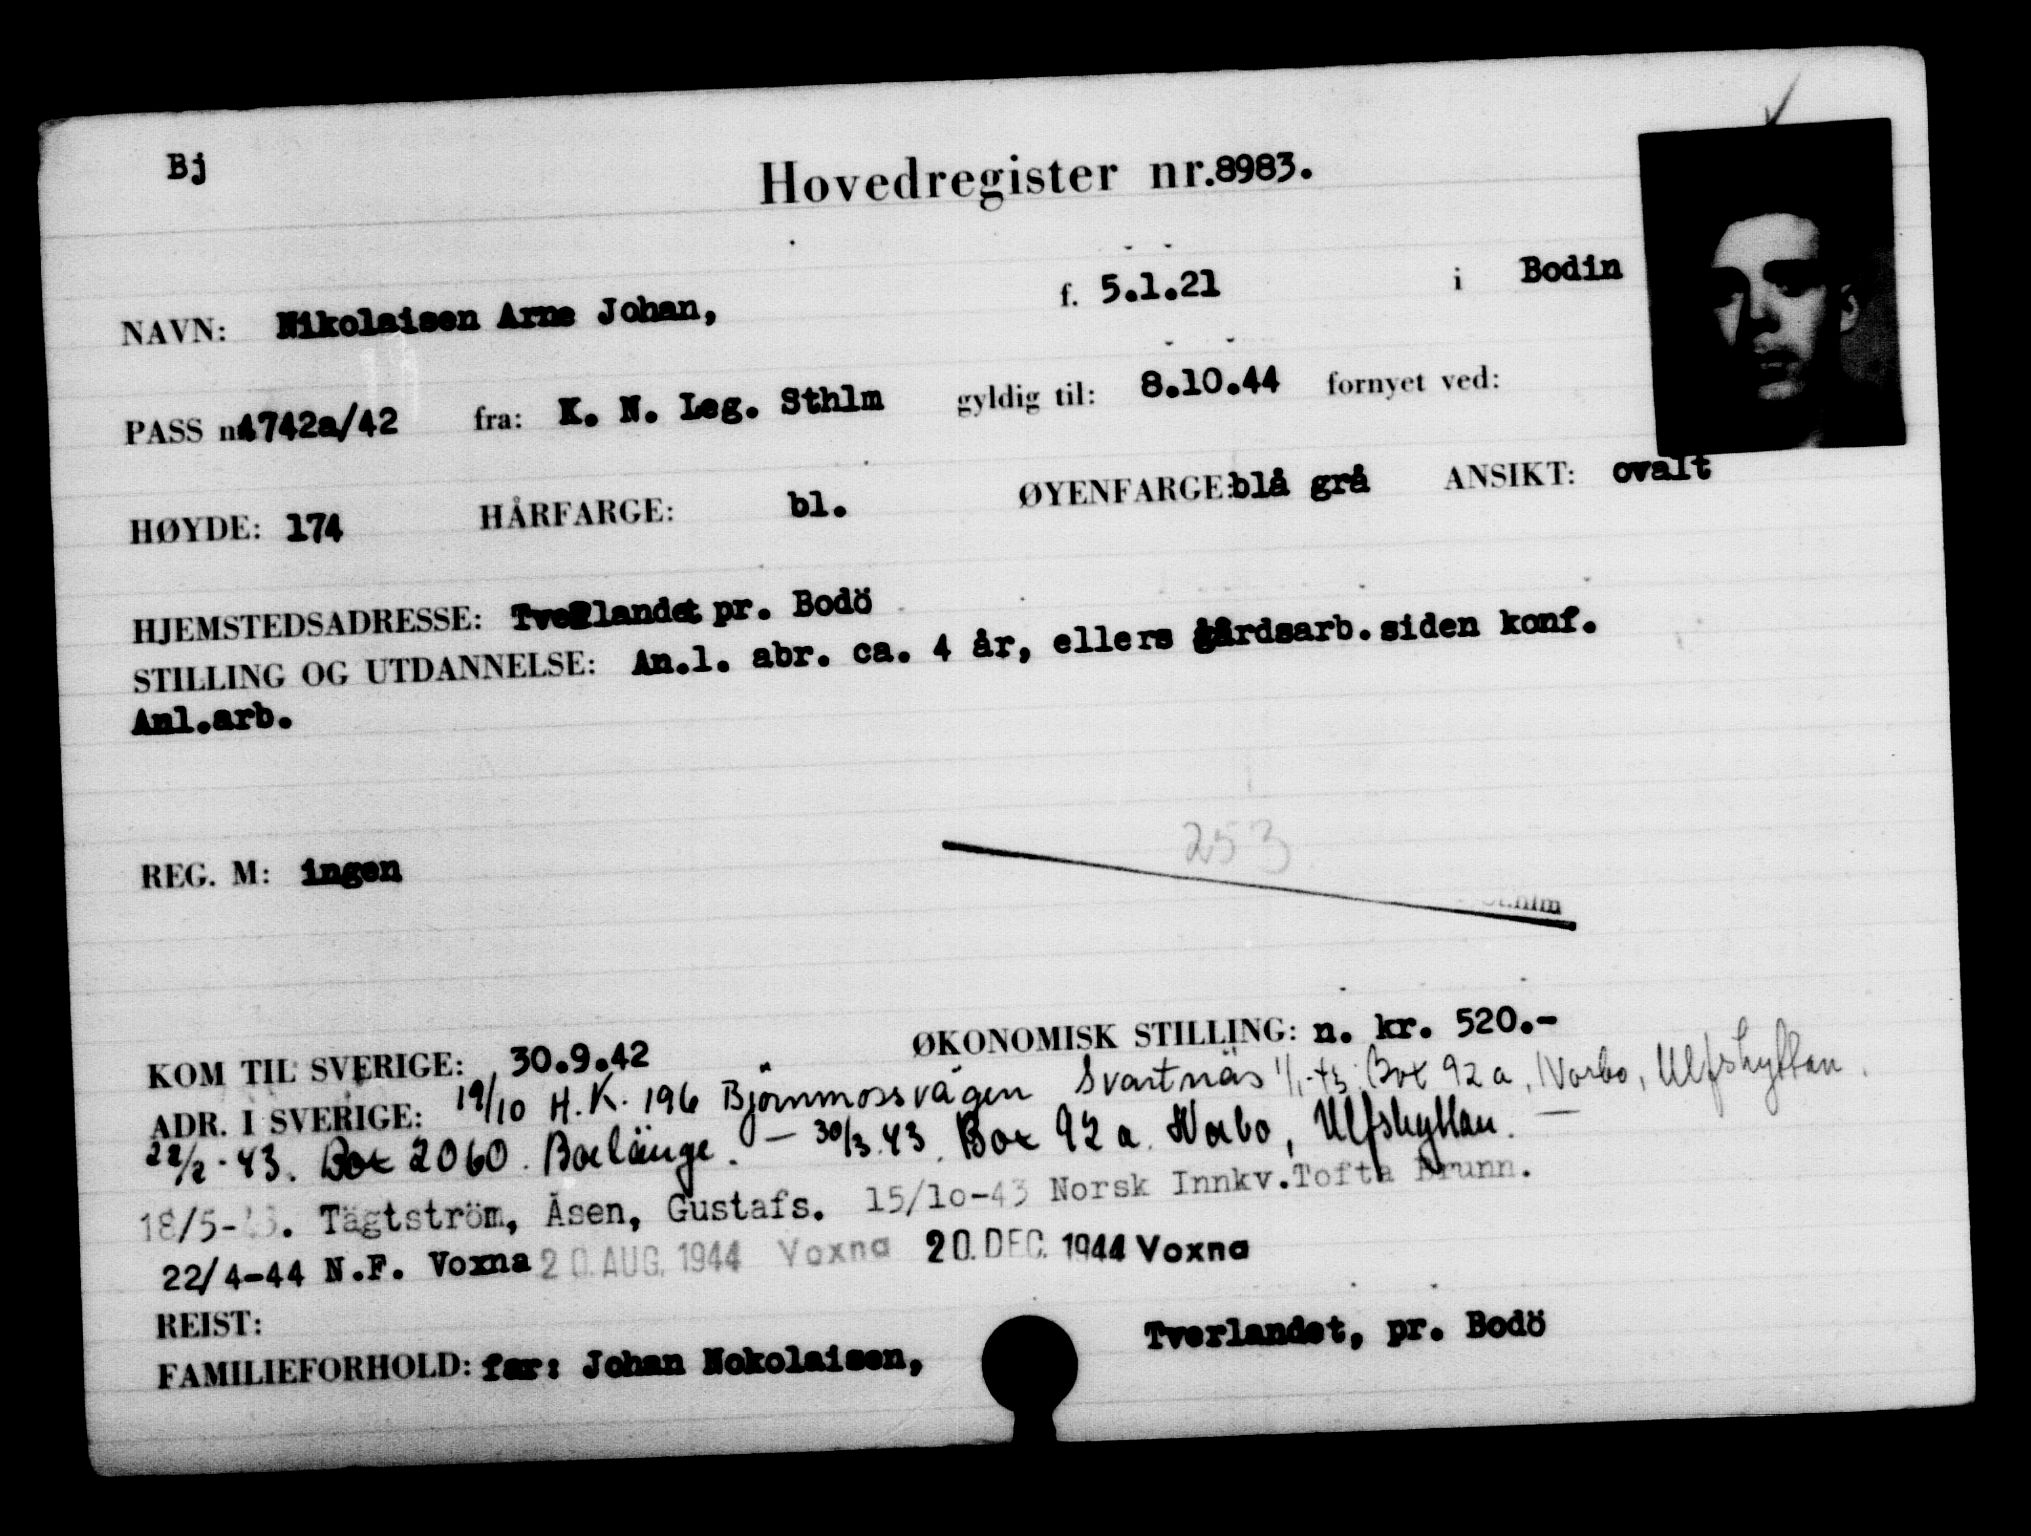 Bj
Hovedregister nr.8983.
NAVN: Nikolaisen Arne Johan, f. 5.1.21 i Bodin
PASS nr4742a/42 fra: K. N. Leg. Sthlm gyldig til: 8.10.44 fornyet ved:
HØYDE: 174 HÅRFARGE: bl. ØYENFARGE:blå grå ANSIKT: ovalt
HJEMSTEDSADRESSE: Tverlandet pr. Bodö
STILLING OG UTDANNELSE: An.l. abr. ca. 4 år, ellers gårdsarb.siden konf.
Anl.arb.
253
REG. M: ingen
KOM TIL SVERIGE: 30.9.42 ØKONOMISK STILLING: n. kr. 520.-
ADR. I SVERIGE: 19/10 H.K. 196 Björnmossvägen Svartnäs 1/1-43 Box 92 a, Norbo, Ulfshyttan.
22/2-43. Box 2060. Borlänge. — 30/3.43. Box 92 a. Norbo, Ulfshyttan. —
18/5-43. Tägtström, Åsen, Gustafs. 15/10-43 Norsk Innkv.Tofta Brunn.
22/4-44 N.F. Voxna 20. AUG. 1944 Voxna 20. DEC. 1944 Voxna
REIST:
FAMILIEFORHOLD: far: Johan Nokolaisen, Tverlandet, pr. Bodö